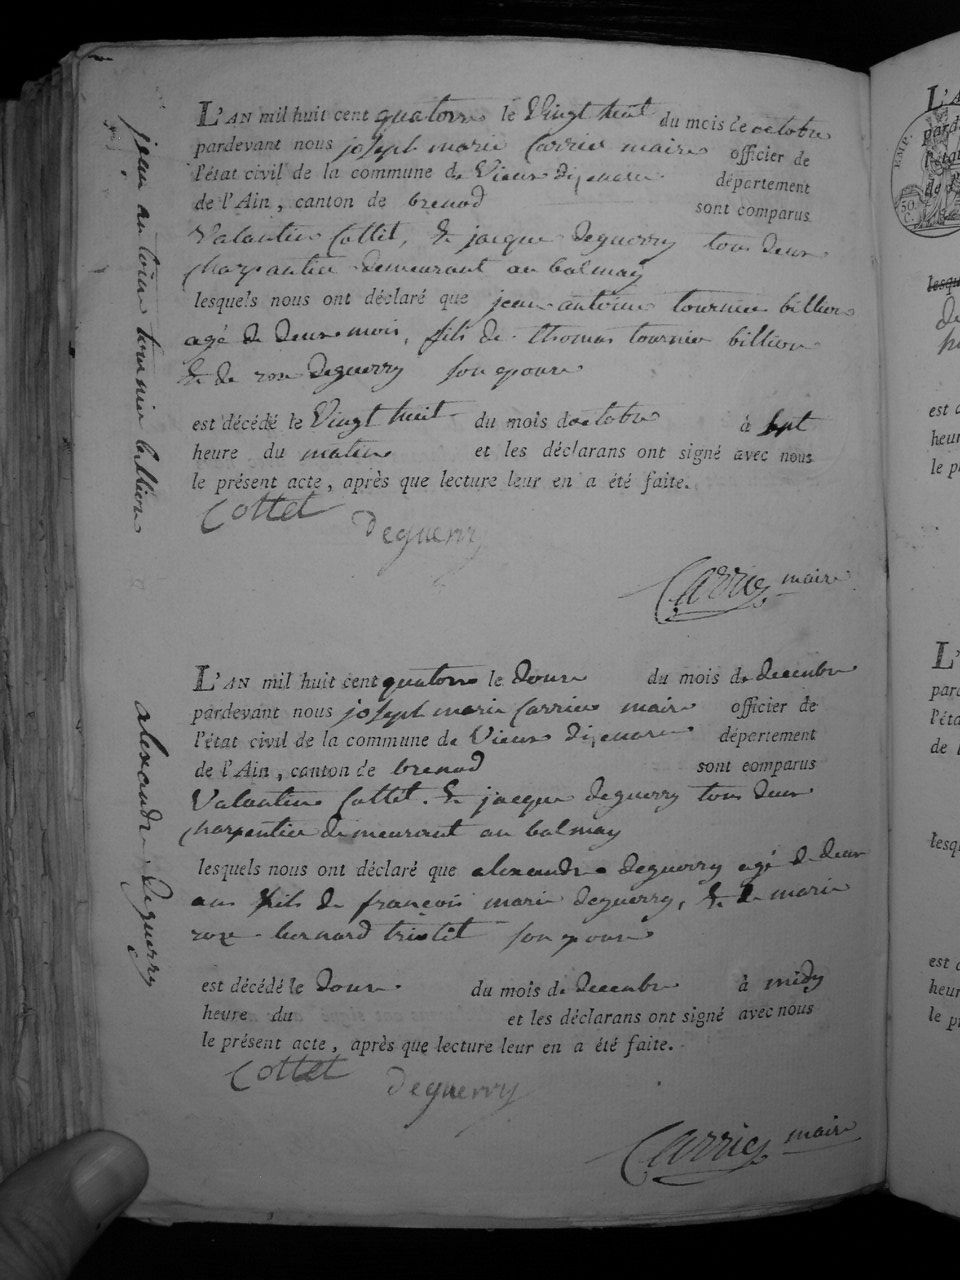 jean antoine tournier billion
L'AN mil huit cent quatorze le Vingt huit du mois de octobre
pardevant nous joseph marie Carrier maire officier de
l'état civil de la commune de Vieux dizenave département
de l'Ain, canton de brenod sont comparus
Valantin Cottet, & jacque deguerry tous deux
charpantier demeurant au balmay
lesquels nous ont déclaré que jean antoine tournier billion
agé de deux mois, fils de thomas tournier billion
& de roze deguerry son epouze
est décédé le Vingt huit du mois d'octobre à sept
heure du matin et les déclarans ont signé avec nous
le présent acte, après que lecture leur en a été faite.
Cottet
deguerry
Carrier maire
alexandre deguerry
L'AN mil huit cent quatorze le douze du mois de decembre
pardevant nous joseph marie Carrier maire officier de
l'état civil de la commune de Vieux dizenave département
de l'Ain, canton de brenod sont comparus
Valantin Cottet. & jacque deguerry tous deux
charpentier demeurant au balmay
lesquels nous ont déclaré que alexandre deguerry agé de deux
ans fils de françois marie deguerry, & de marie
roze bernard son epouze
est décédé le douze du mois de decembre à midy
heure du et les déclarans ont signé avec nous
le présent acte, après que lecture leur en a été faite.
Cottet
deguerry
Carrier maire
L'A
pard
l'éta
de l
lesqu
est d
heur
le p
L'
pard
l'éta
de l
lesq
est d
heur
le p